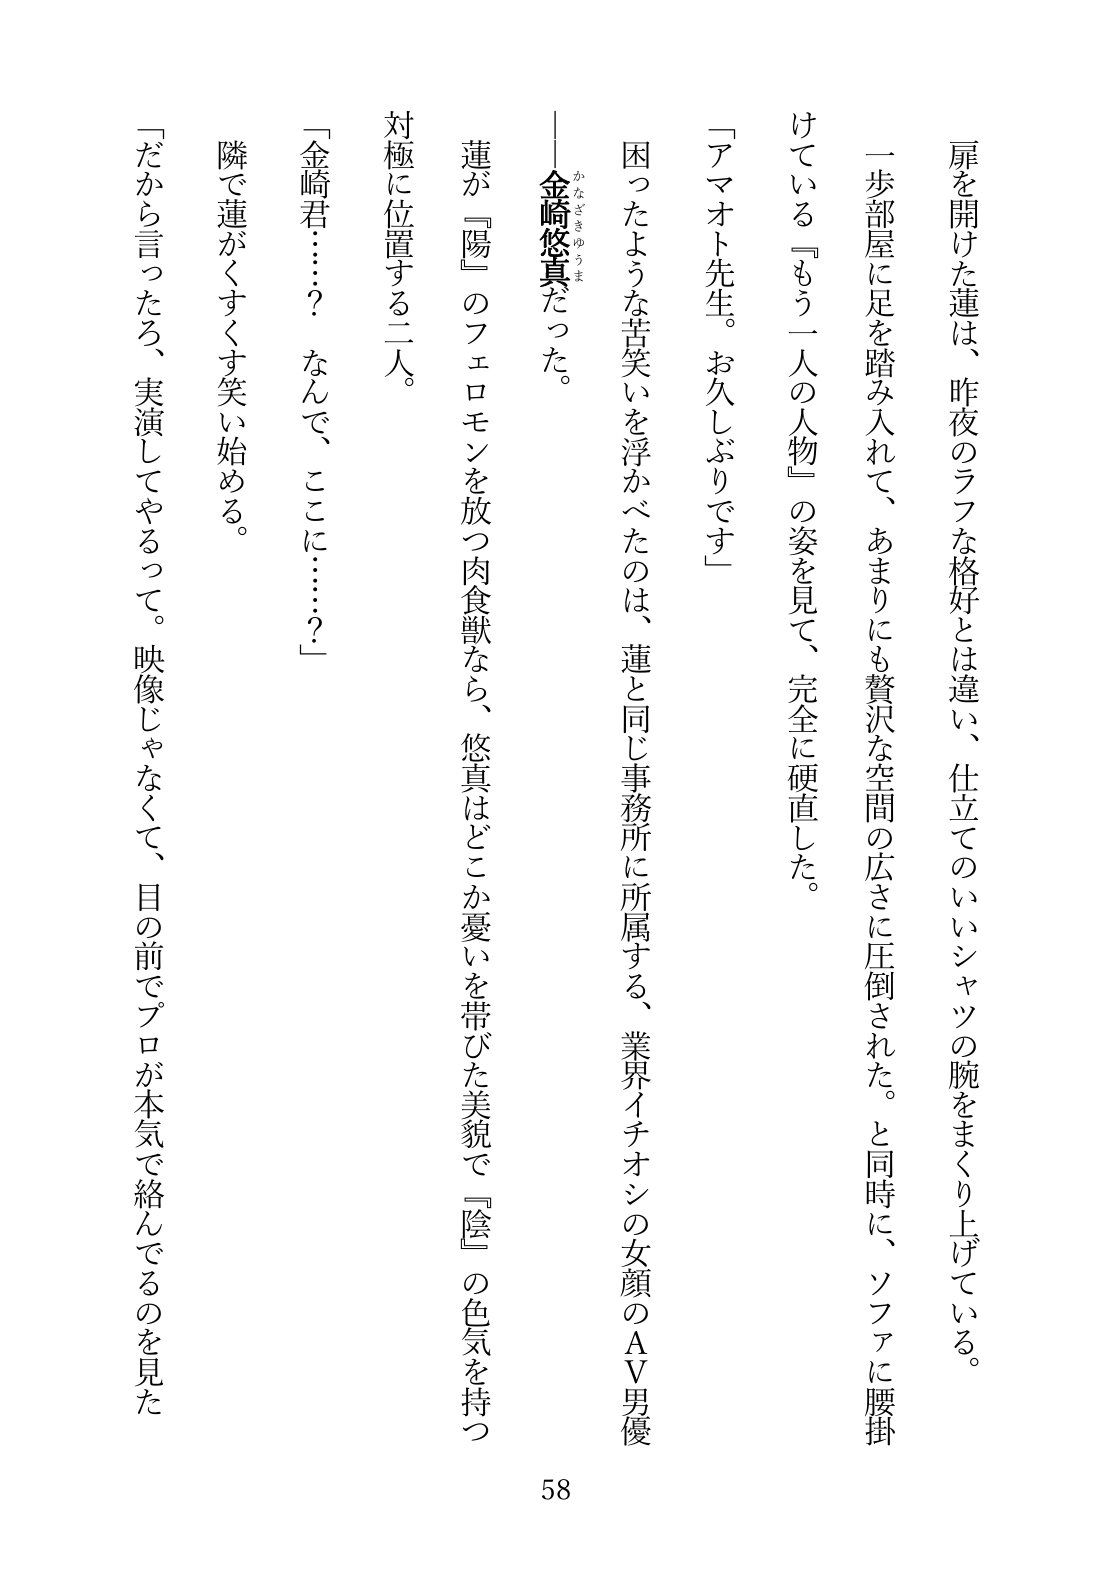 扉を開けた蓮は、昨夜のラフな格好とは違い、仕立てのいいシャツの腕をまくり上げている。
　一歩部屋に足を踏み入れて、あまりにも贅沢な空間の広さに圧倒された。と同時に、ソファに腰掛
けている『もう一人の人物』の姿を見て、完全に硬直した。
「アマオト先生。お久しぶりです」
　困ったような苦笑いを浮かべたのは、蓮と同じ事務所に所属する、業界イチオシの女顔のＡＶ男優
かなざきゆうま
――金崎悠真だった。
　蓮が『陽』のフェロモンを放つ肉食獣なら、悠真はどこか憂いを帯びた美貌で『陰』の色気を持つ
対極に位置する二人。
「金崎君……？　なんで、ここに……？」
　隣で蓮がくすくす笑い始める。
「だから言ったろ、実演してやるって。映像じゃなくて、目の前でプロが本気で絡んでるのを見た
58